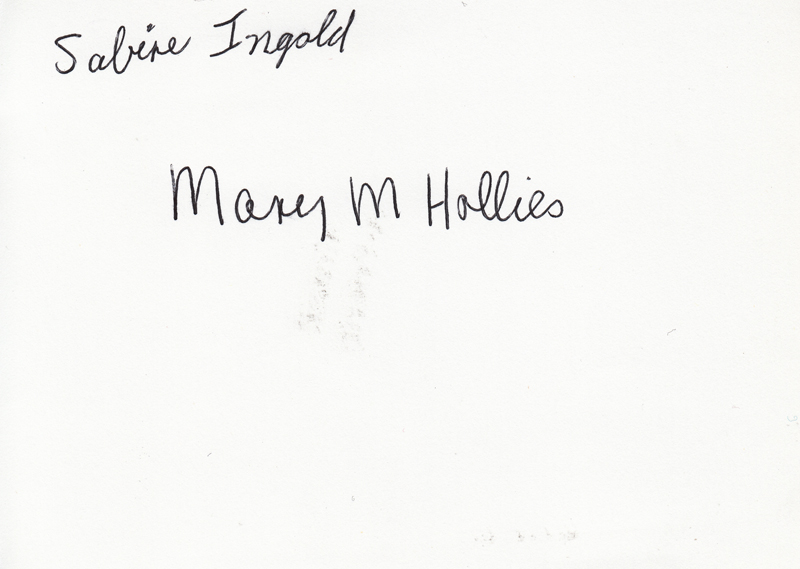 Sabine Ingold
Mary M Hollies